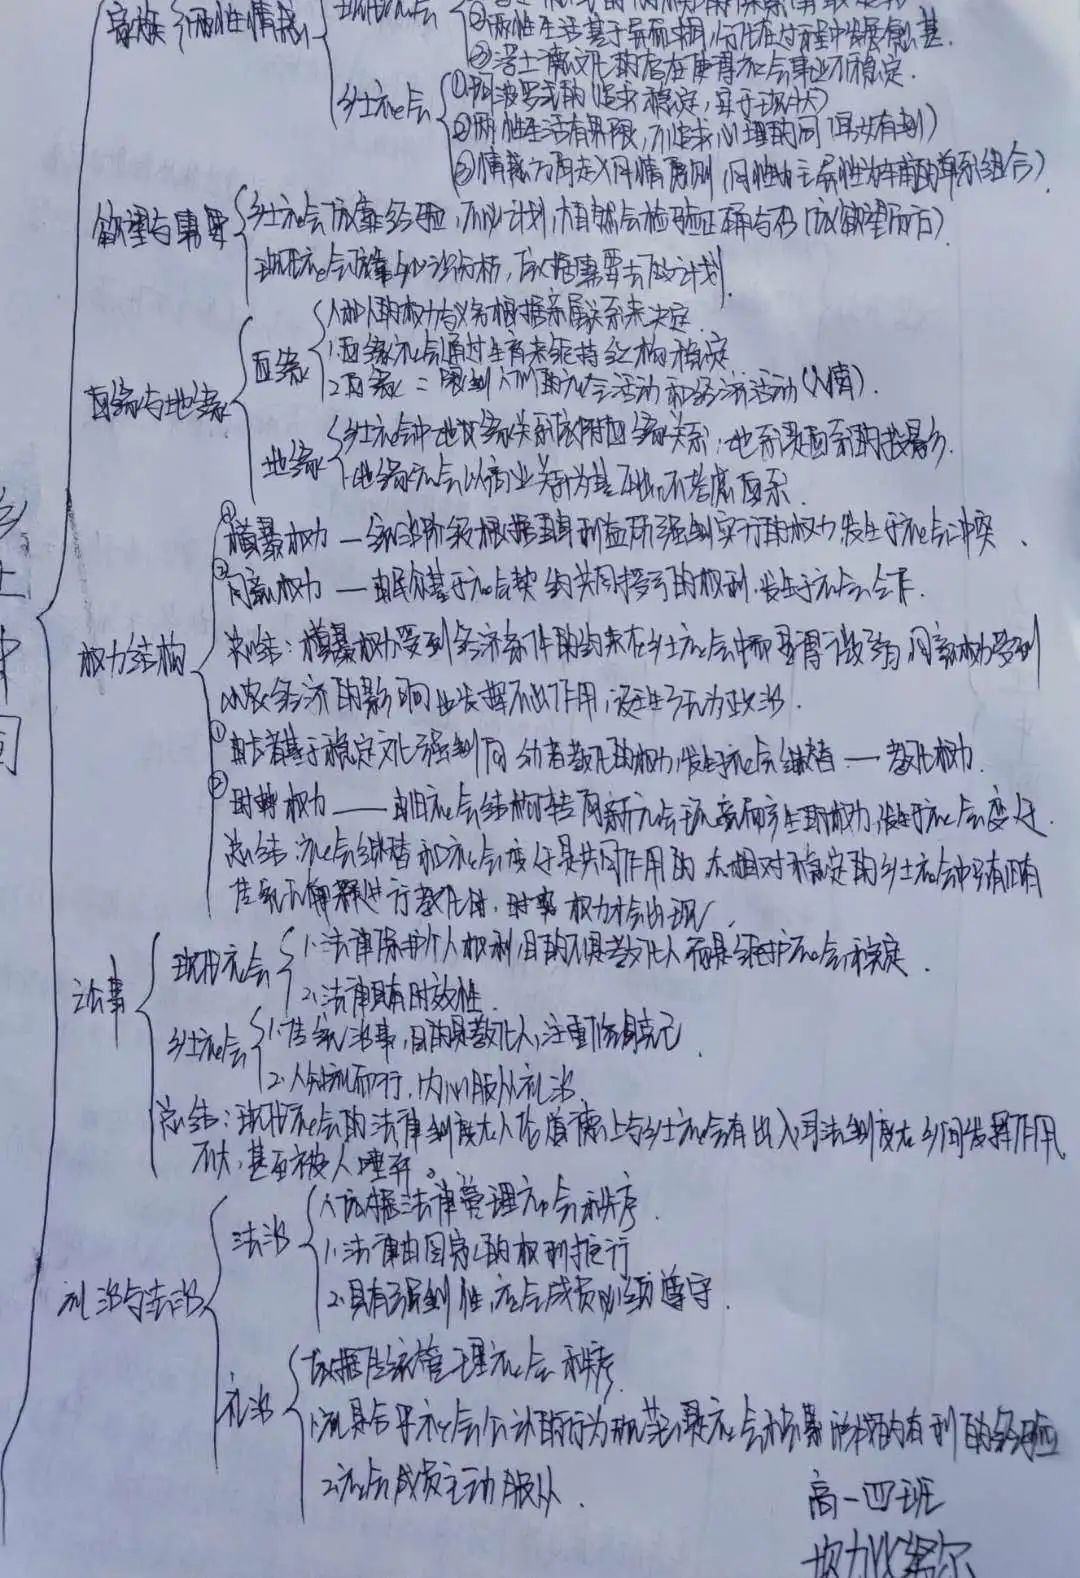 家族 行为性情感
现代社会
②两性生活基于异而求同,变化在过程中发展感情基
③浮士德文化的存在使得社会事业不稳定.
乡土社会
①阿波罗式的追求稳定,安于现状
②两性生活有界限,不追求心理的同(男女有别)
③情感方面走入同情原则,同性为主异性为辅的单系组合)
欲望与需要
乡土社会依靠经验,不必计划,自然会检验正确与否(依欲望而言)
现代社会依靠知识分析,依据需要去做计划
血缘与地缘
血缘
人和人的权力与义务根据亲属关系来决定
1.血缘社会通过生育来维持结构稳定
2.血缘 = 限制人们的社会活动和经济活动(人情).
地缘
乡土社会中地缘关系依附血缘关系,地系是血系的投影.
1.地缘社会以商业关系为基础,不考虑血系.
乡土中国
权力结构
①横暴权力 — 统治阶级根据自身利益所强制实行的权力 发生于社会冲突.
②同意权力 — 由民众基于社会契约共同授予的权利,发生于社会合作.
总结:横暴权力受到经济条件的约束在乡土社会中而显得微弱,同意权力受到
小农经济的影响也发挥不出作用,诞生了无为政治.
①由长者基于稳定文化强制向幼者教化的权力,发生于社会继替 — 教化权力.
②时势权力 — 由旧社会结构转向新社会环境而产生的权力,发生于社会变迁.
总结:社会继替和社会变迁是共同作用的,在相对稳定的乡土社会中只有旧有
传统不能解释进行教化时,时势权力才会出现.
讼事
现代社会
1.法律保护个人权利,目的不是教化人而是维护社会稳定.
2.法律具有时效性
乡土社会
1.传统讼事,目的是教化人,注重修身克己
2.人知礼而行,内心服从礼治
总结:现代社会的法律制度在人伦道德上与乡土社会有出入,司法制度在乡间发挥作用
不大,甚至被人唾弃。
礼治与法治
法治
依据法律管理社会秩序.
1.法律由国家的权利推行
2.具有强制性,社会成员必须遵守.
礼治
依据传统管理社会秩序
1.礼是合乎社会公认的行为规范,是社会积累形成的有利的经验
2.社会成员主动服从.
高一四班